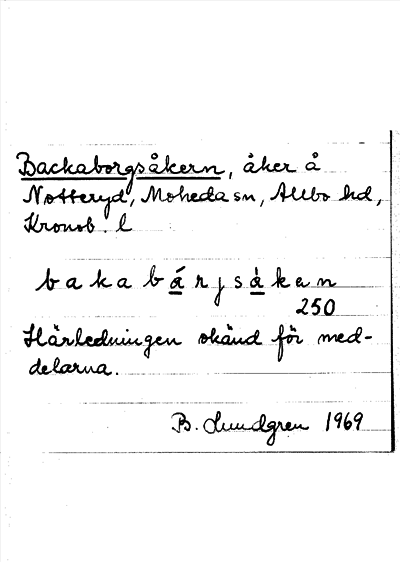 Backaborgsåkern, åker å
Notteryd, Moheda sn, Allbo hd,
Kronob. l
bakabá̲rjså̲kan
250
Härledningen okänd för med-
delarna.
B. Lundgren 1969